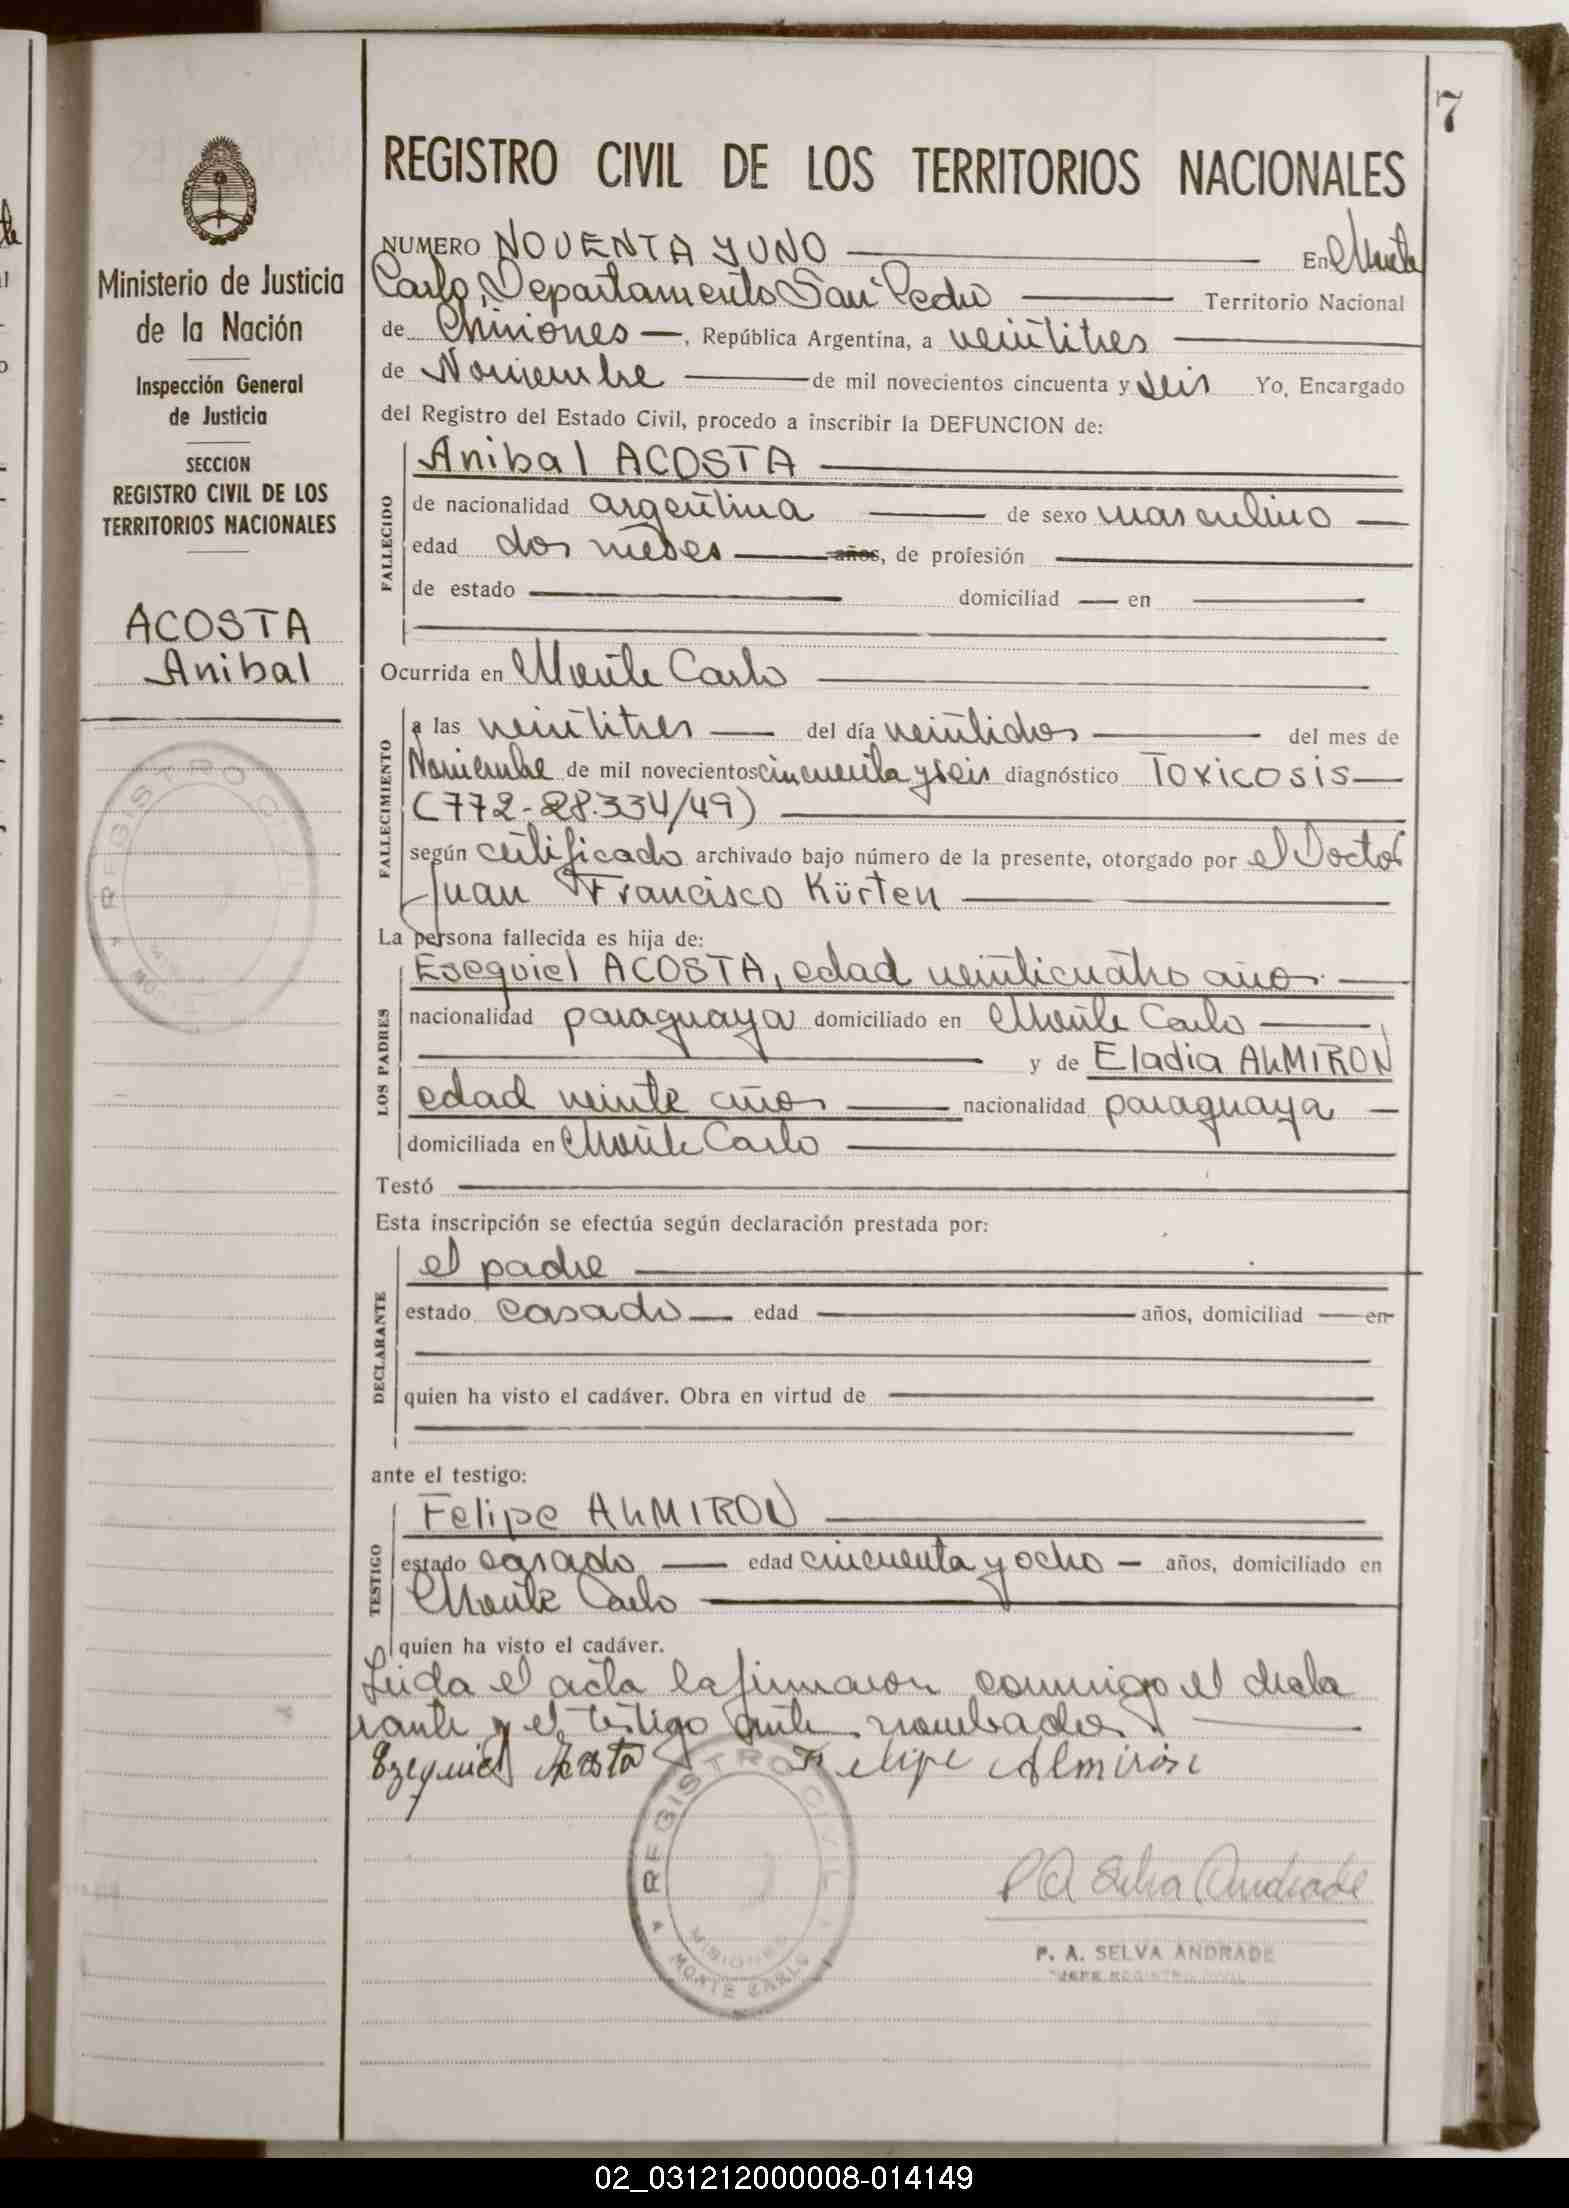 7
REGISTRO CIVIL DE LOS TERRITORIOS NACIONALES
Ministerio de Justicia
de la Nación
Inspección General
de Justicia
SECCION
REGISTRO CIVIL DE LOS
TERRITORIOS NACIONALES
ACOSTA
Anibal
NUMERO NOVENTA Y UNO En Monte
Carlo, Departamento San Pedro Territorio Nacional
de Misiones, República Argentina, a veintitres
de Noviembre de mil novecientos cincuenta y seis Yo, Encargado
del Registro del Estado Civil, procedo a inscribir la DEFUNCION de:
FALLECIDO
Anibal ACOSTA
de nacionalidad argentina de sexo masculino
edad dos meses años, de profesión
de estado domiciliad en
Ocurrida en Monte Carlo
FALLECIMIENTO
a las veintitres del día veintidos del mes de
Noviembre de mil novecientos cincuenta y seis diagnóstico Toxicosis
(772-28.334/49)
según certificado archivado bajo número de la presente, otorgado por el Doctor
Juan Francisco Kürten
La persona fallecida es hija de:
LOS PADRES
Esequiel ACOSTA, edad veinticuatro años
nacionalidad paraguaya domiciliado en Monte Carlo
y de Eladia ALMIRON
edad veinte años nacionalidad paraguaya
domiciliada en Monte Carlo
Testó
Esta inscripción se efectúa según declaración prestada por:
DECLARANTE
el padre
estado casado edad años, domiciliad en
quien ha visto el cadáver. Obra en virtud de
ante el testigo:
TESTIGO
Felipe ALMIRON
estado casado edad cincuenta y ocho años, domiciliado en
Monte Carlo
quien ha visto el cadáver.
Leida el acta la firmaron conmigo el decla
rante y el testigo ante nombrados.
Ezequiel Acosta Felipe Almirón
REGISTRO CIVIL
MISIONES
MONTE CARLO
P A Selva Andrade
P. A. SELVA ANDRADE
JEFE REGISTRO CIVIL
02_031212000008-014149